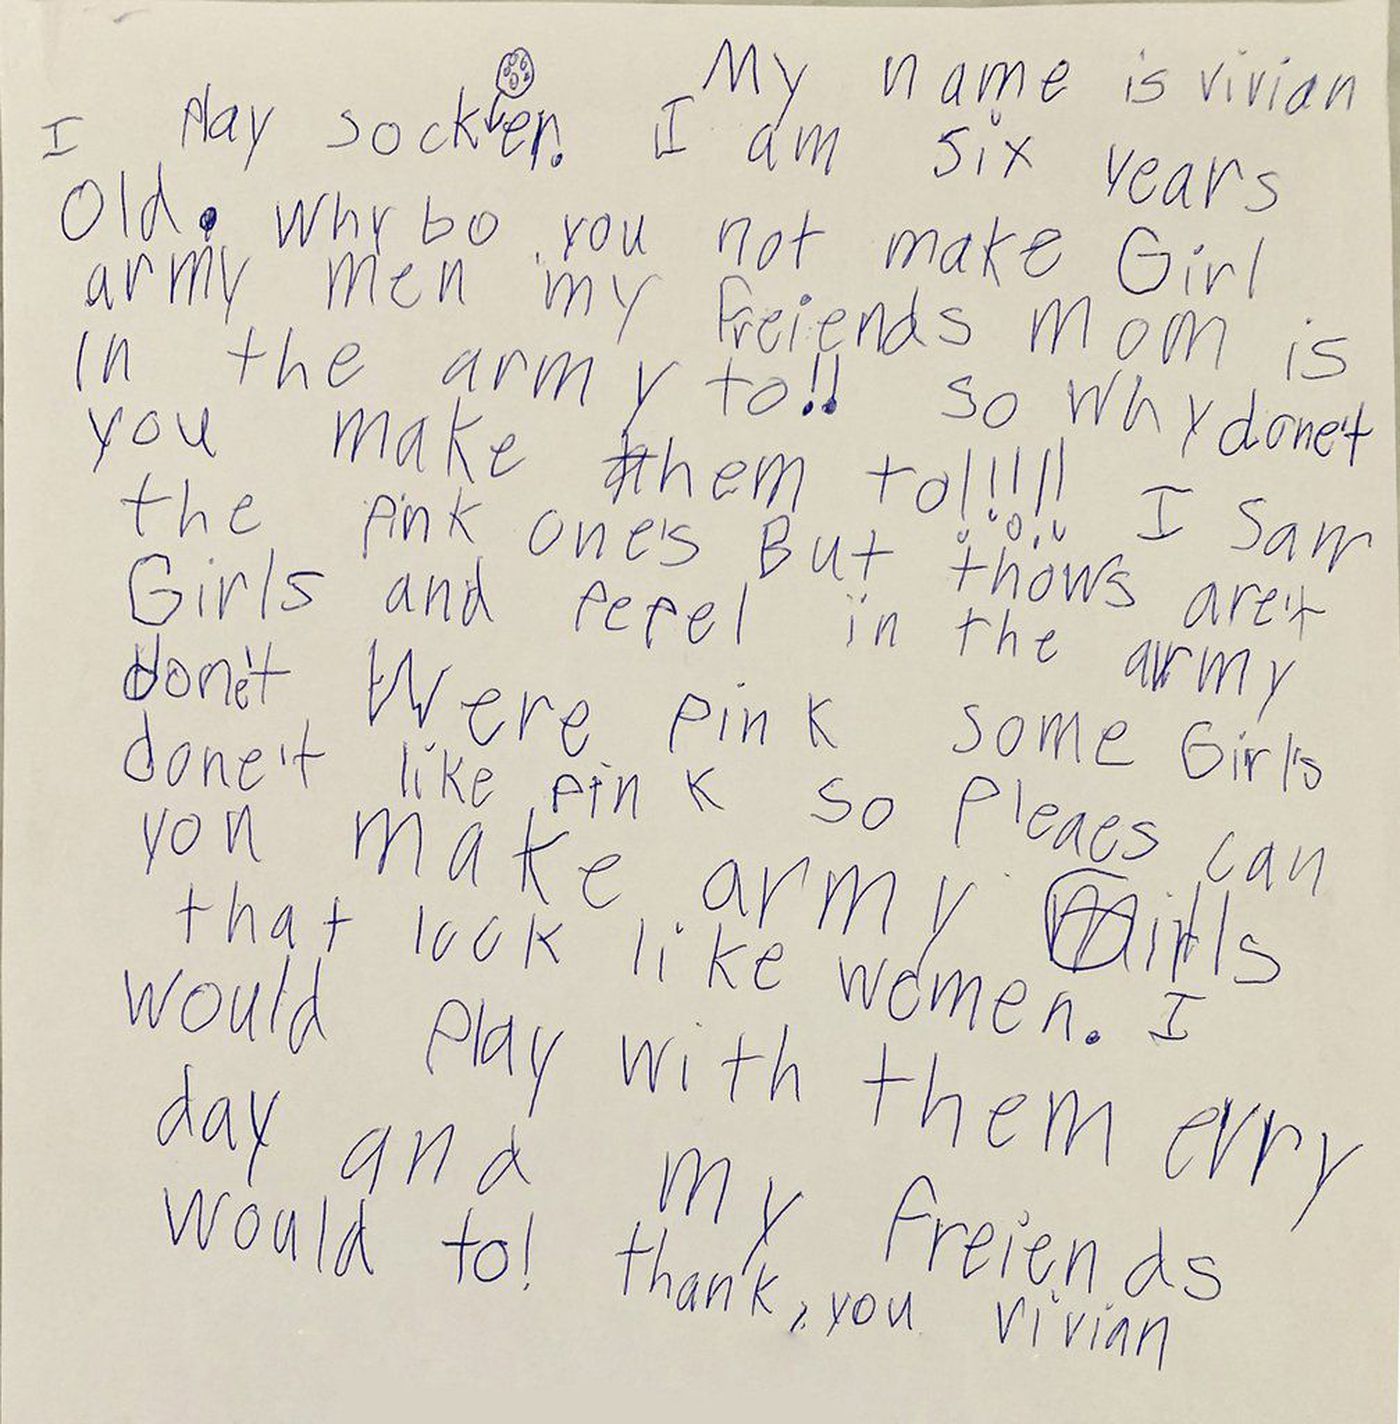 My name is vivian
I play socker. I am six years
Old. Why bo you not make Girl
army men my freiends mom is
in the army to!! so why done't
you make them to!!!!! I Saw
the pink one's But thows are't
Girls and pepel in the army
don't Were pink some Girl's
done't like pink so Pleaes can
you make army Girls
that look like women. I
would play with them evry
day and my freiends
would to! thank, you vivian